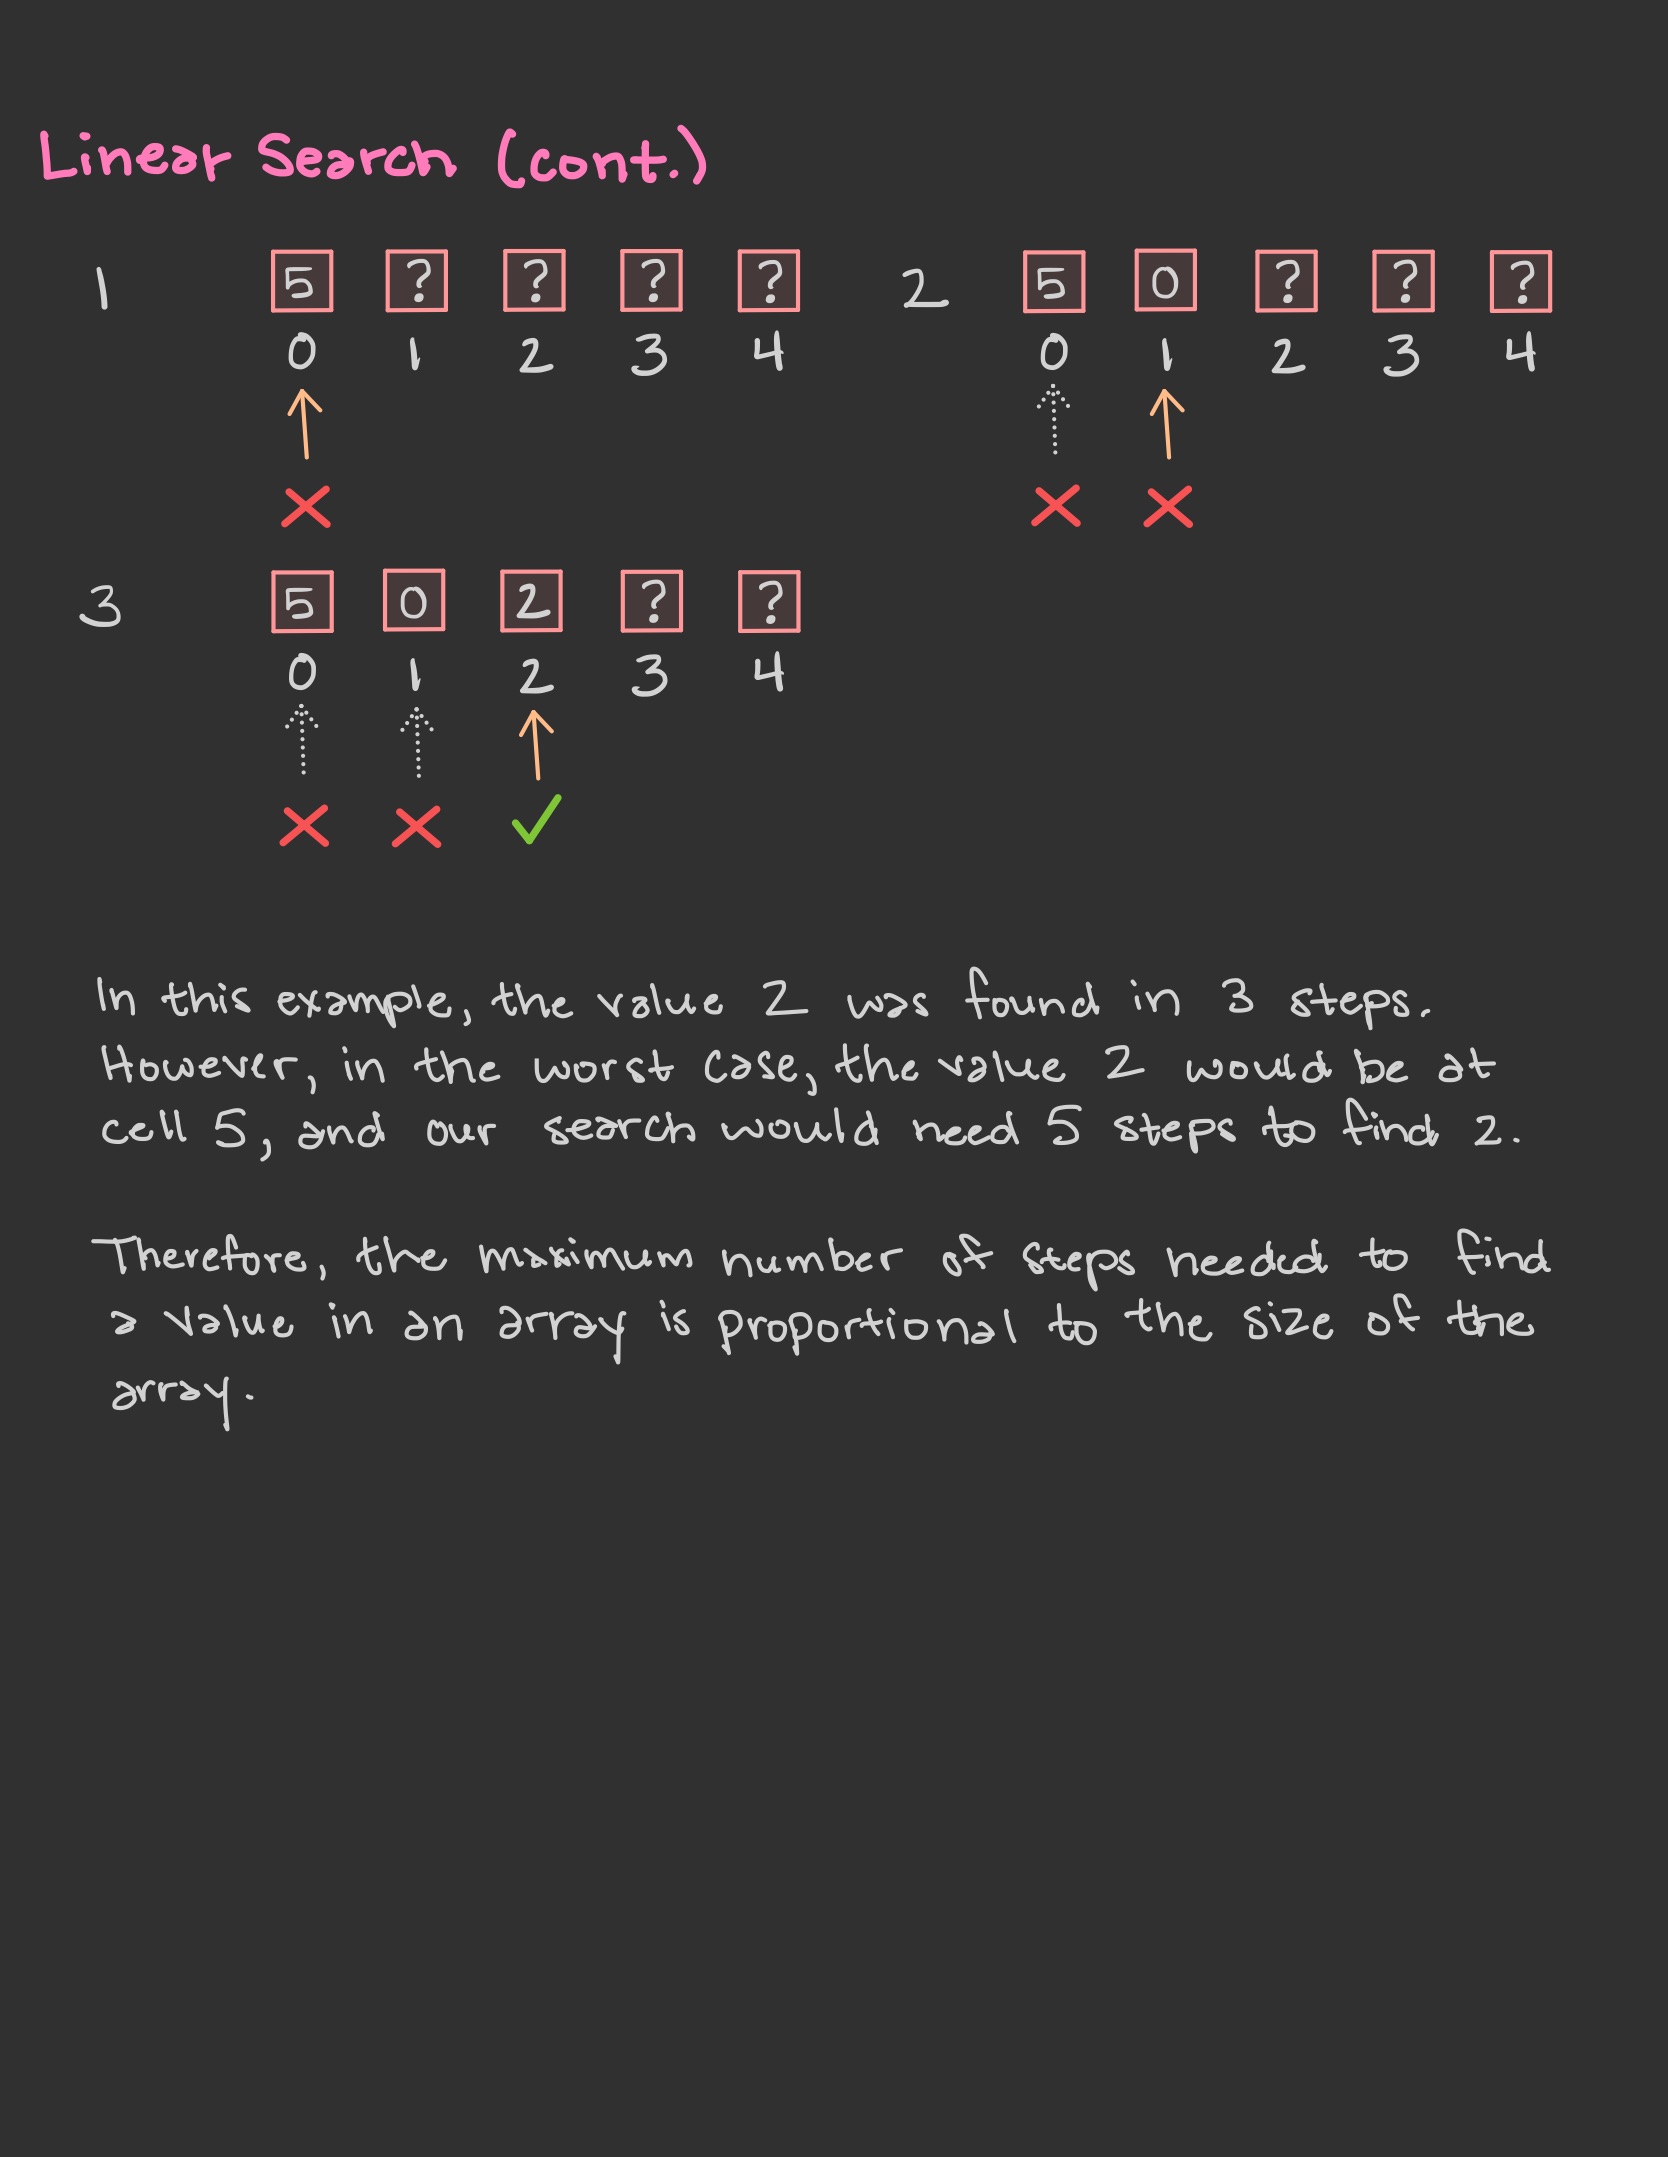 Linear Search (cont.)
1 5 ? ? ? ? 2 5 0 ? ? ?
0 1 2 3 4 0 1 2 3 4
3 5 0 2 ? ?
0 1 2 3 4
In this example, the value 2 was found in 3 steps.
However, in the worst case, the value 2 would be at
cell 5, and our search would need 5 steps to find 2.
Therefore, the maximum number of steps needed to find
a value in an array is proportional to the size of the
array.